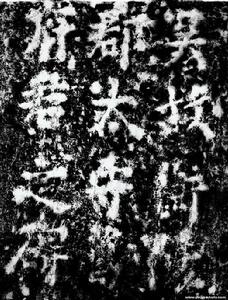 吳故衡
郡太守
府君之碑